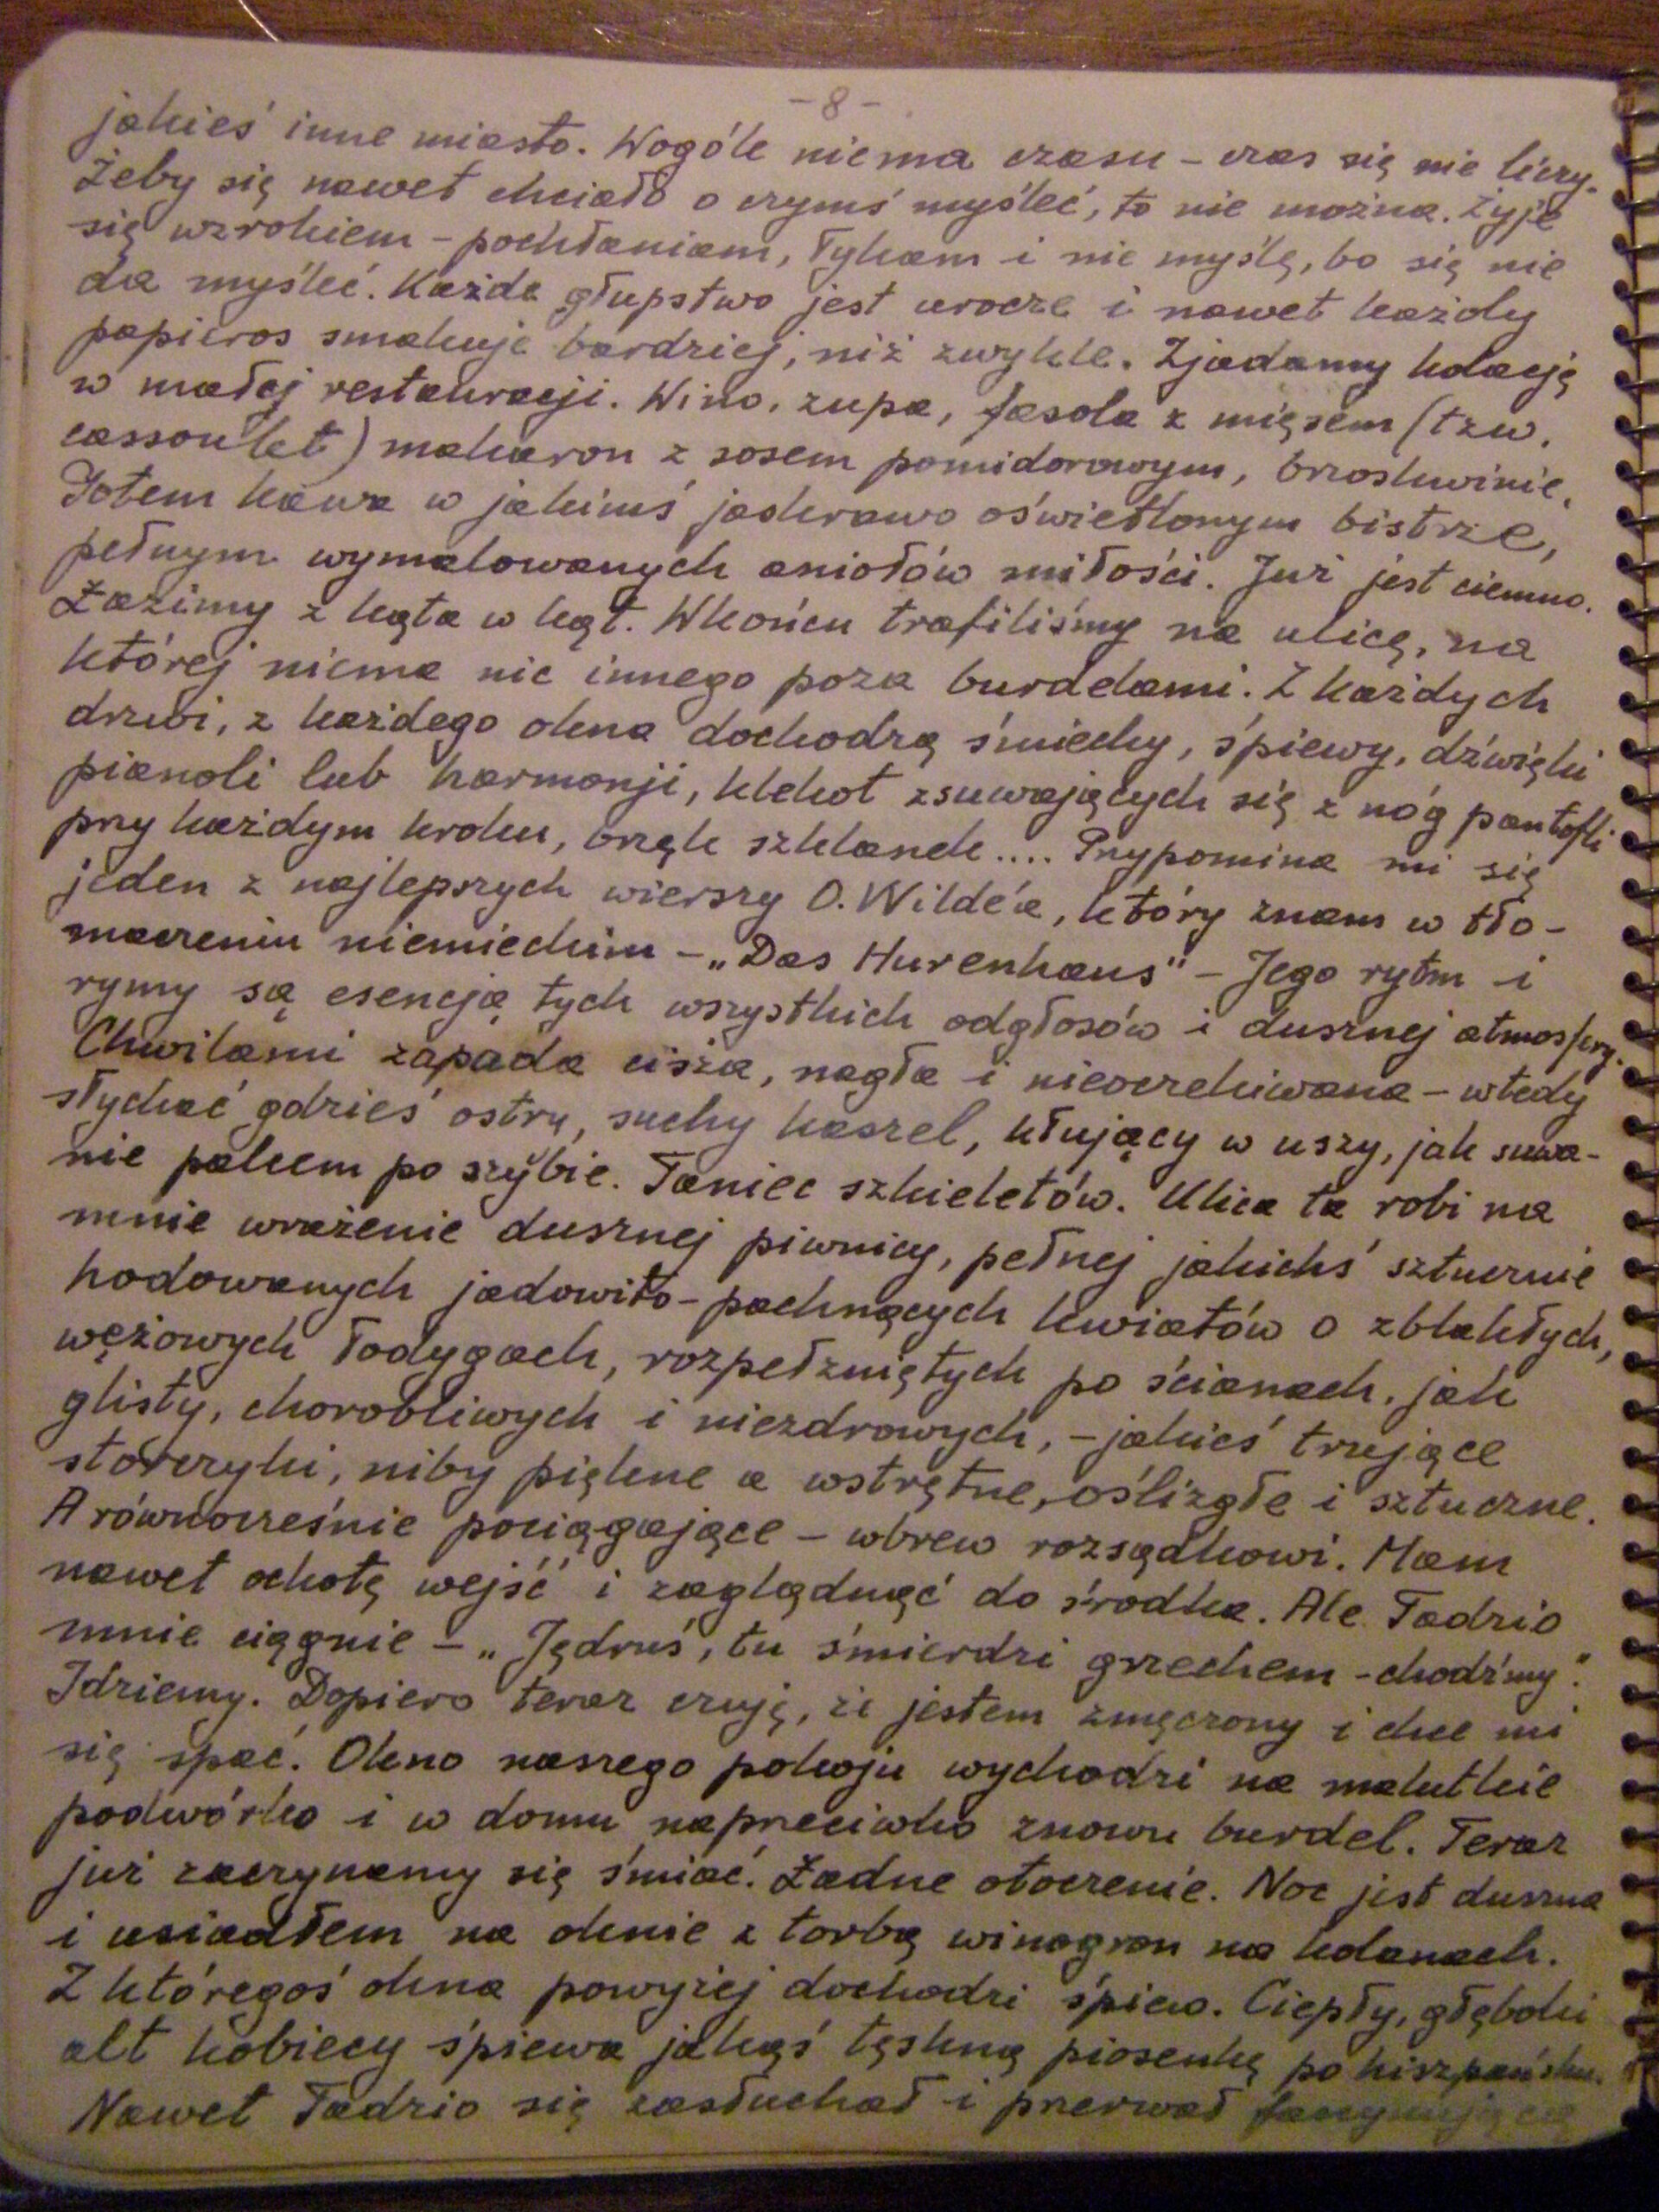 - 8 -
jakieś inne miasto. Wogóle niema czasu - czas się nie liczy.
Żeby się nawet chciało o czymś myśleć, to nie można. Żyje
się wzrokiem - pochłaniam, łykam i nie myślę, bo się nie
da myśleć. Każde głupstwo jest urocze i nawet każdy
papieros smakuje bardziej, niż zwykle. Zjadamy kolację
w małej restauracji. Wino, zupa, fasola z mięsem (tzw.
cassoulet) makaron z sosem pomidorowym, brzoskwinie.
Potem kawa w jakimś jaskrawo oświetlonym bistrze,
pełnym wymalowanych aniołów miłości. Już jest ciemno.
Łazimy z kąta w kąt. Wkońcu trafiliśmy na ulicę, na
której niema nic innego poza burdelami. Z każdych
drzwi, z każdego okna dochodzą śmiechy, śpiewy, dźwięki
pianoli lub harmonji, klekot zsuwających się z nóg pantofli
przy każdym kroku, brzęk szklanek.... Przypomina mi się
jeden z najlepszych wierszy O. Wilde'a, który znam w tło-
maczeniu niemieckim - „Das Hurenhaus" - Jego rytm i
rymy są esencją tych wszystkich odgłosów i dusznej atmosfery.
Chwilami zapada cisza, nagła i nieoczekiwana - wtedy
słychać gdzieś ostry, suchy kaszel, kłujący w uszy, jak suwa-
nie palcem po szybie. Taniec szkieletów. Ulica ta robi na
mnie wrażenie dusznej piwnicy, pełnej jakichś sztucznie
hodowanych jadowito-pachnących kwiatów o zblakłych,
wężowych łodygach, rozpełzniętych po ścianach, jak
glisty, chorobliwych i niezdrowych, - jakieś trujące
storczyki, niby piękne a wstrętne, oślizgłe i sztuczne.
A równocześnie pociągające - wbrew rozsądkowi. Mam
nawet ochotę wejść i zaglądnąć do środka. Ale Tadzio
mnie ciągnie - „Jędruś, tu śmierdzi grzechem - chodźmy".
Idziemy. Dopiero teraz czuję, że jestem zmęczony i chce mi
się spać. Okno naszego pokoju wychodzi na malutkie
podwórko i w domu naprzeciwko znowu burdel. Teraz
już zaczynamy się śmiać. Ładne otoczenie. Noc jest duszna
i usiadłem na oknie z torbą winogron na kolanach.
Z któregoś okna powyżej dochodzi śpiew. Ciepły, głęboki
alt kobiecy śpiewa jakąś tęskną piosenkę po hiszpańsku.
Nawet Tadzio się zasłuchał i przerwał fascynującą